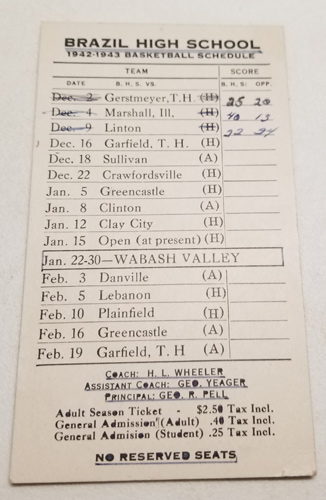 BRAZIL HIGH SCHOOL
1942-1943 BASKETBALL SCHEDULE
TEAM SCORE
DATE B. H. S. VS. B. H. S: OPP.
Dec. 2 Gerstmeyer, T.H. (H) 25 20
Dec. 4 Marshall, Ill, (H) 40 13
Dec. 9 Linton (H) 22 24
Dec. 16 Garfield, T. H. (H)
Dec. 18 Sullivan (A)
Dec. 22 Crawfordsville (H)
Jan. 5 Greencastle (H)
Jan. 8 Clinton (A)
Jan. 12 Clay City (H)
Jan. 15 Open (at present) (H)
Jan. 22-30—WABASH VALLEY
Feb. 3 Danville (A)
Feb. 5 Lebanon (H)
Feb. 10 Plainfield (H)
Feb. 16 Greencastle (A)
Feb. 19 Garfield, T. H (A)
COACH: H. L. WHEELER
ASSISTANT COACH: GEO. YEAGER
PRINCIPAL: GEO. R. PELL
Adult Season Ticket - $2.50 Tax Incl.
General Admission (Adult) .40 Tax Incl.
General Admision (Student) .25 Tax Incl.
NO RESERVED SEATS